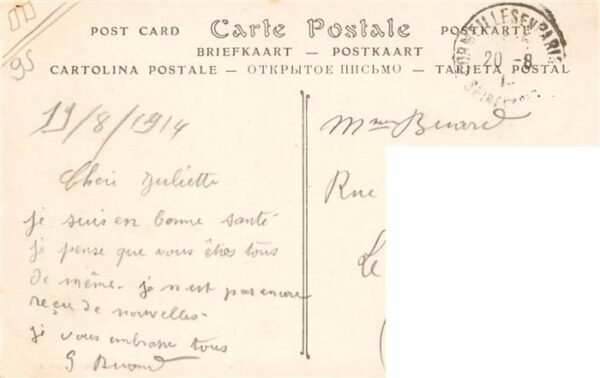 POST CARD Carte Postale POSTKARTE
BRIEFKAART — POSTKAART
CARTOLINA POSTALE — ОТКРЫТОЕ ПИСЬМО — TARJETA POSTAL
95
CORMEILLES EN PARISIS
20 - 8
19/8/1914
Cheri Juliette
je suis en bonne santé
je pense que vous êtes tous
de même. je n est pas encore
reçu de nouvelles
je vous embrasse tous
Mme Buard
Rue
Le